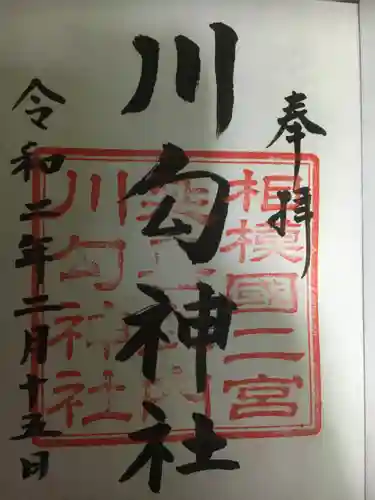 奉拝
川勾神社
令和二年二月十五日
相模國二宮
川勾神社